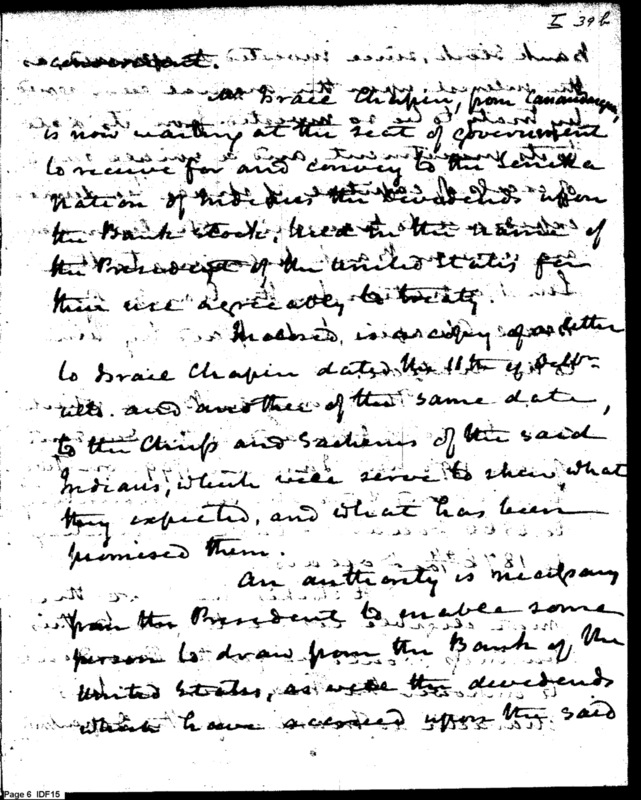 I 39b
Mr Israel Chapin, from Canandaigua,
is now waiting at the seat of government
to receive for and convey to the Seneka
Nation of Indians the Dividends upon
the Bank Stock, held in the name of
the President of the United States for
their use agreeably to treaty.
Inclosed, is a copy of a letter
to Israel Chapin dated the 11th of
ulto. and another of the same date,
to the Chiefs and Sachems of the said
Indians, which will serve to shew, what
they expected, and what has been
promised them.
An authority is necessary
from the President to enable some
person to draw from the Bank of the
United States, as well the dividends
which have accrued upon the said
Page 6 IDF15